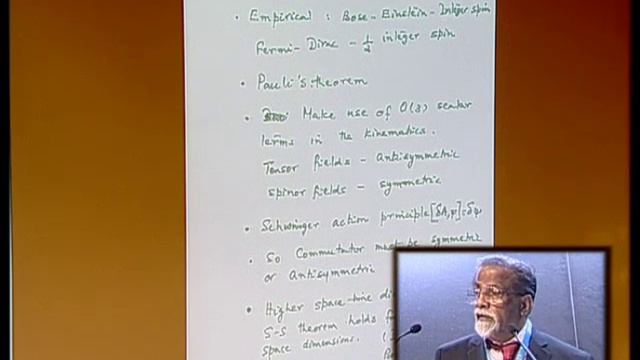 • Empirical : Bose-Einstein-Integer spin
Fermi-Dirac - 1/2 integer spin
• Pauli's theorem
• Make use of O(3) scalar
terms in the kinematics.
Tensor fields - antisymmetric
spinor fields - symmetric
• Schwinger action principle [δA,ψ]=δψ
• So Commutator must be symmetric
or Antisymmetric
• Higher space-time
S-S theorem holds
space dimensions.